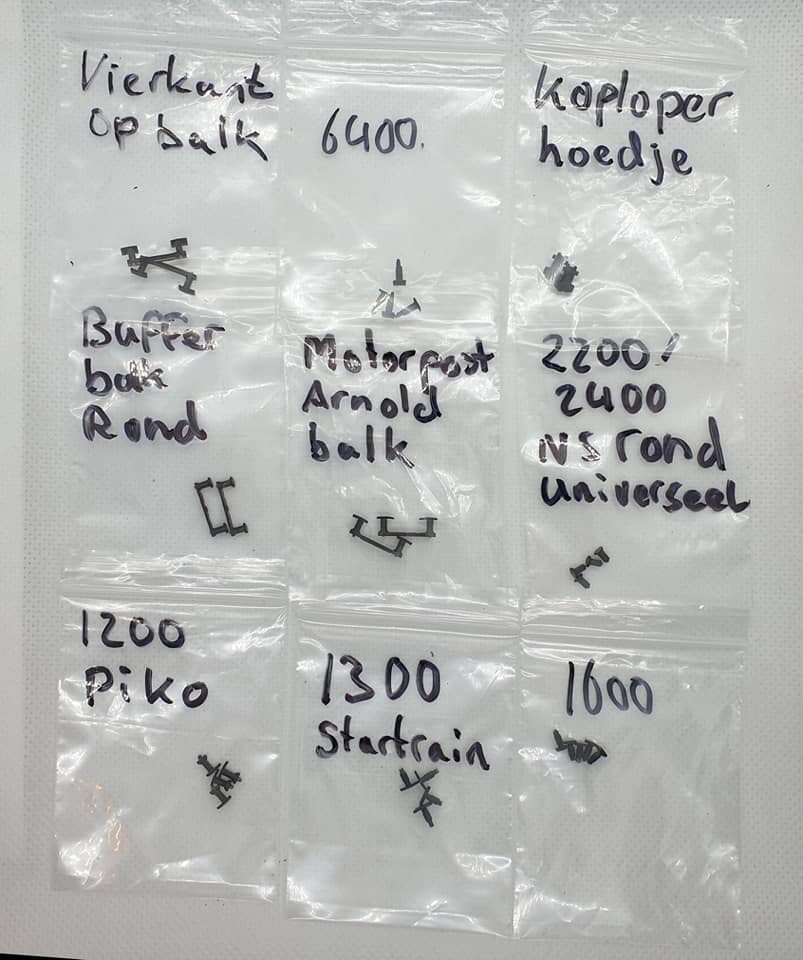 Vierkant
op balk
6400.
Koploper
hoedje
Buffer
balk
Rond
Motorpost
Arnold
balk
2200/
2400
NS rond
universeel
1200
Piko
1300
Startrain
1600